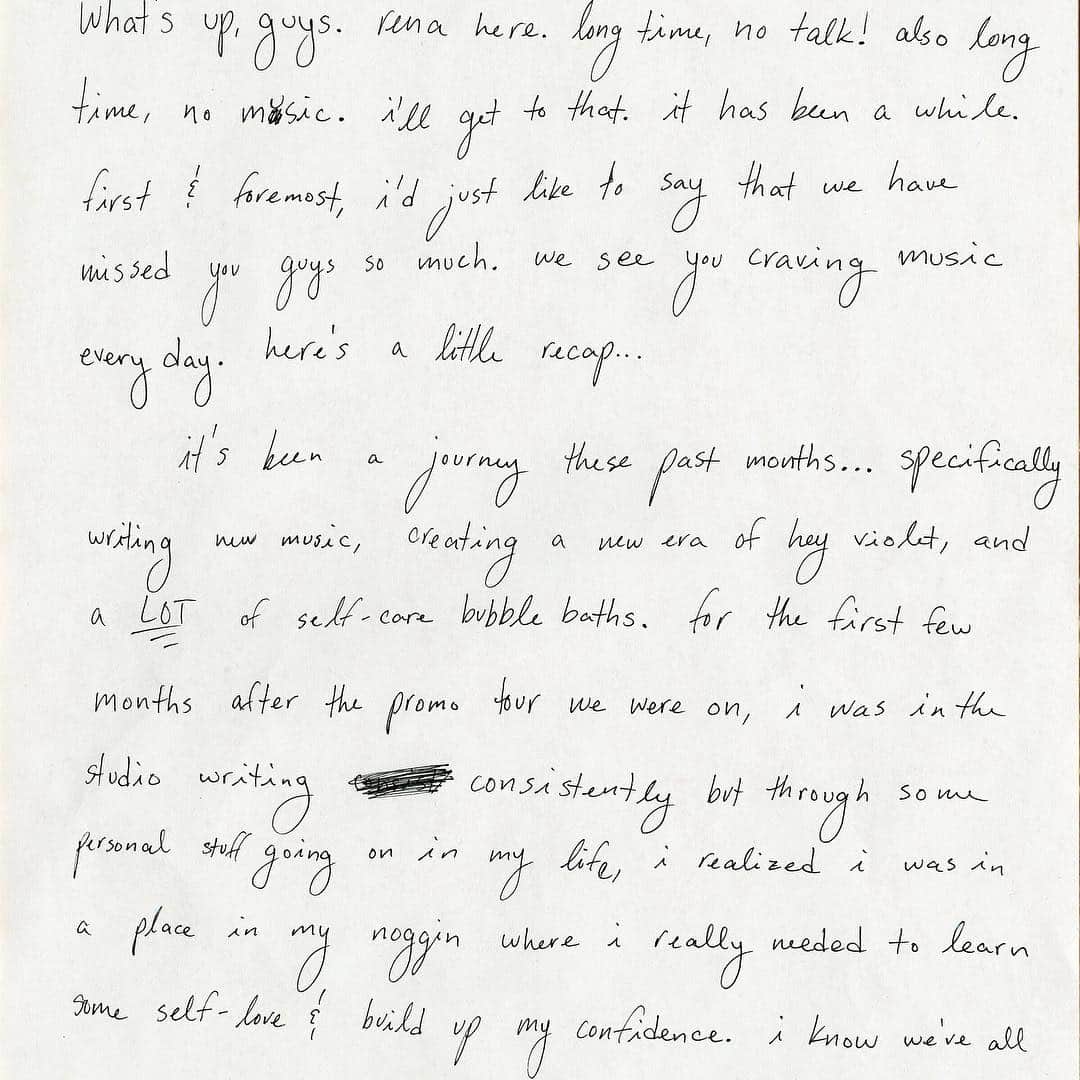 What's up, guys. rena here. long time, no talk! also long
time, no music. i'll get to that. it has been a while.
first & foremost, i'd just like to say that we have
missed you guys so much. we see you craving music
every day. here's a little recap...
it's been a journey these past months... specifically
writing new music, creating a new era of hey violet, and
a LOT of self-care bubble baths. for the first few
months after the promo tour we were on, i was in the
studio writing consistently but through some
personal stuff going on in my life, i realized i was in
a place in my noggin where i really needed to learn
some self-love & build up my confidence. i know we've all